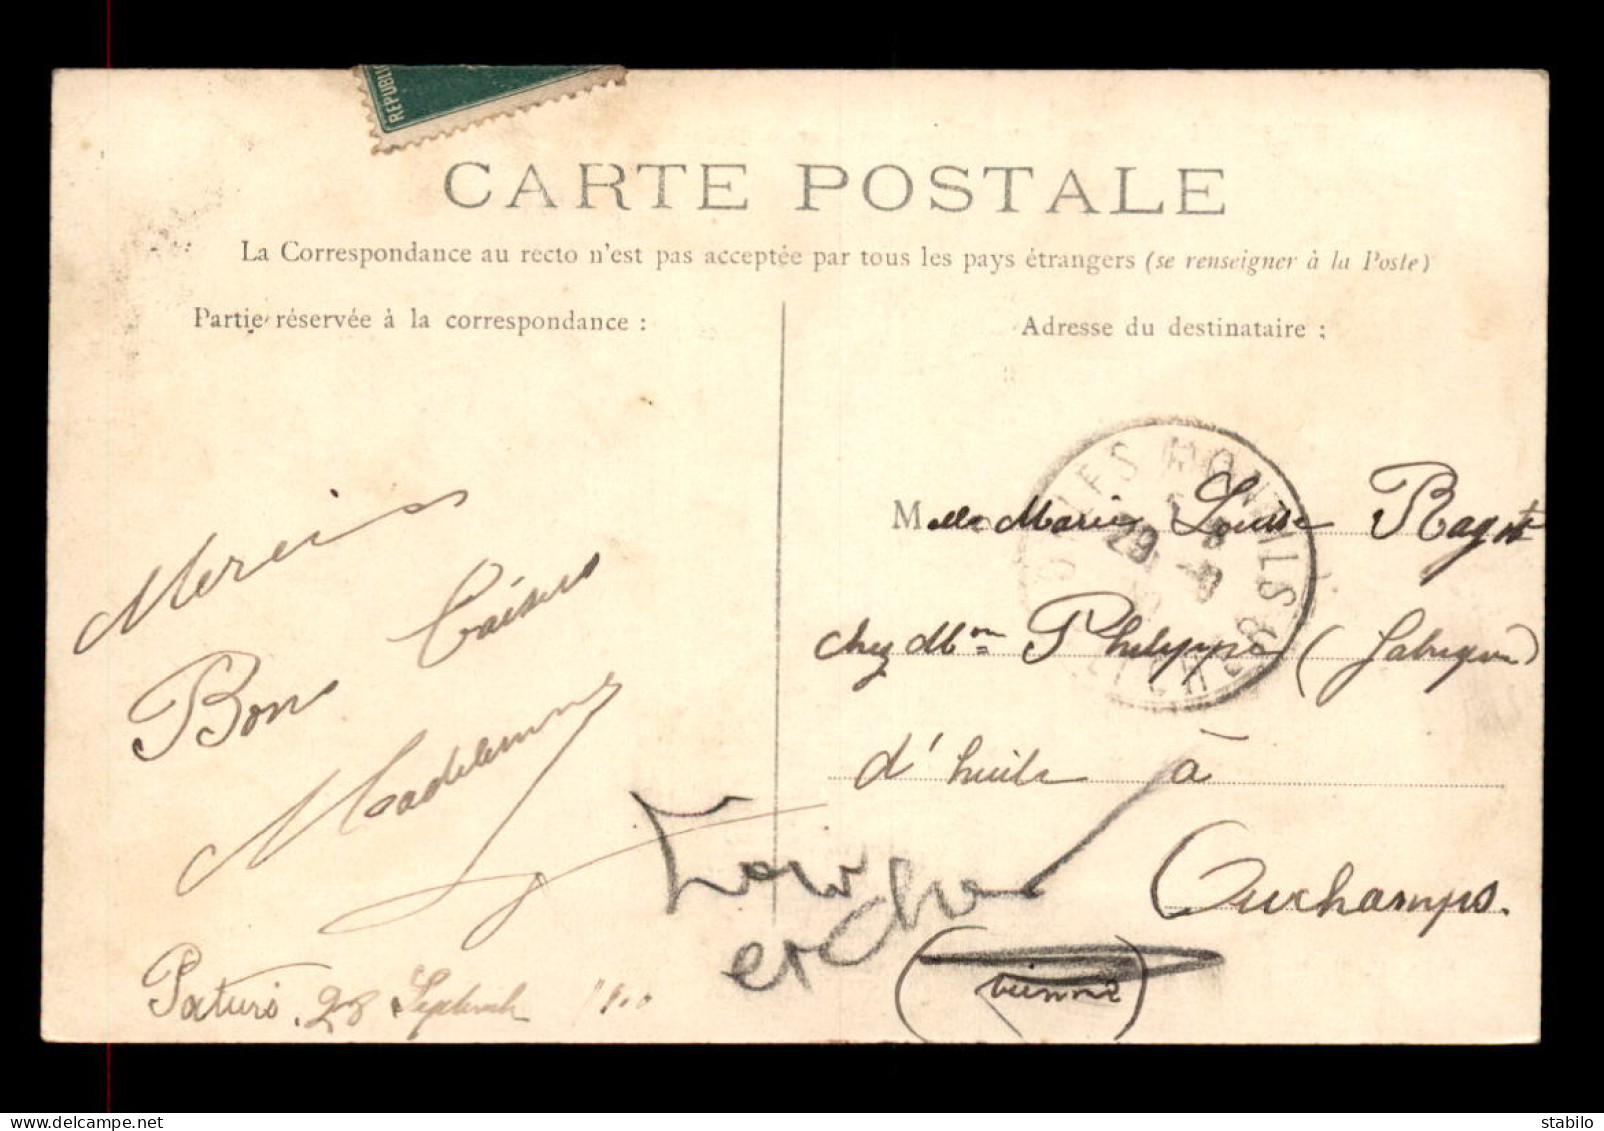 RÉPUBLIQ
CARTE POSTALE
La Correspondance au recto n'est pas acceptée par tous les pays étrangers (se renseigner à la Poste)
Partie réservée à la correspondance :
Adresse du destinataire :
Bons Baisers
Madeleine
28 Septembre
LES MONTILS
29
Melle Marie Louise Ragot
chez Mon Philippe (fabrique)
d'huile à
Ouchamps.
Loir
et Cher
(Vienne)
stabilo
www.delcampe.net